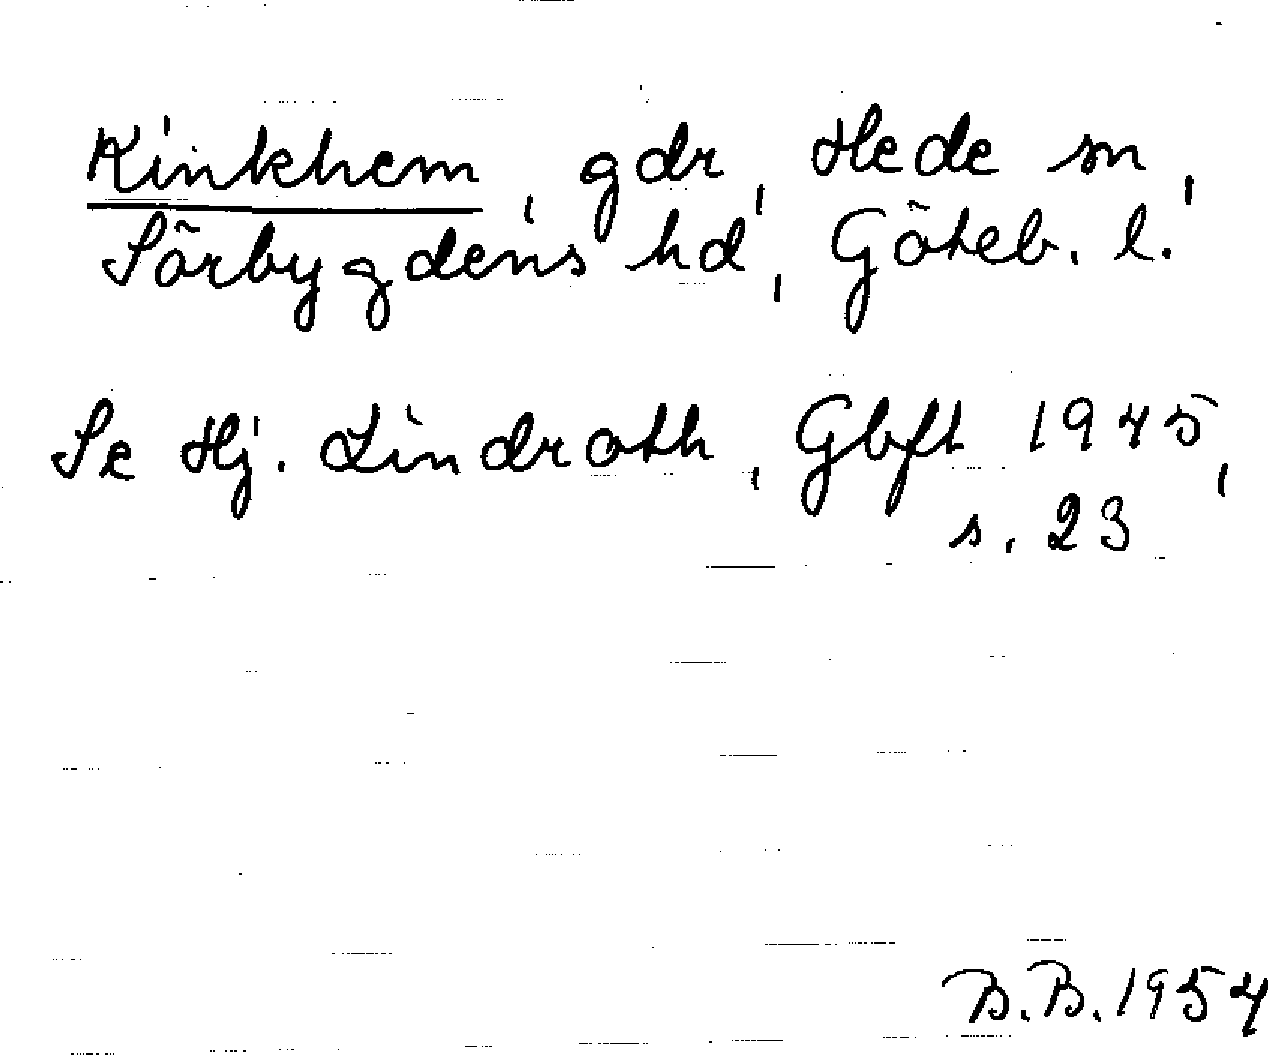 Kinkhem, gdr, Hede sn,
Sörbygdens hd, Göteb. l.
Se Hj. Lindroth, Gbft 1945,
s. 23
B.B. 1954